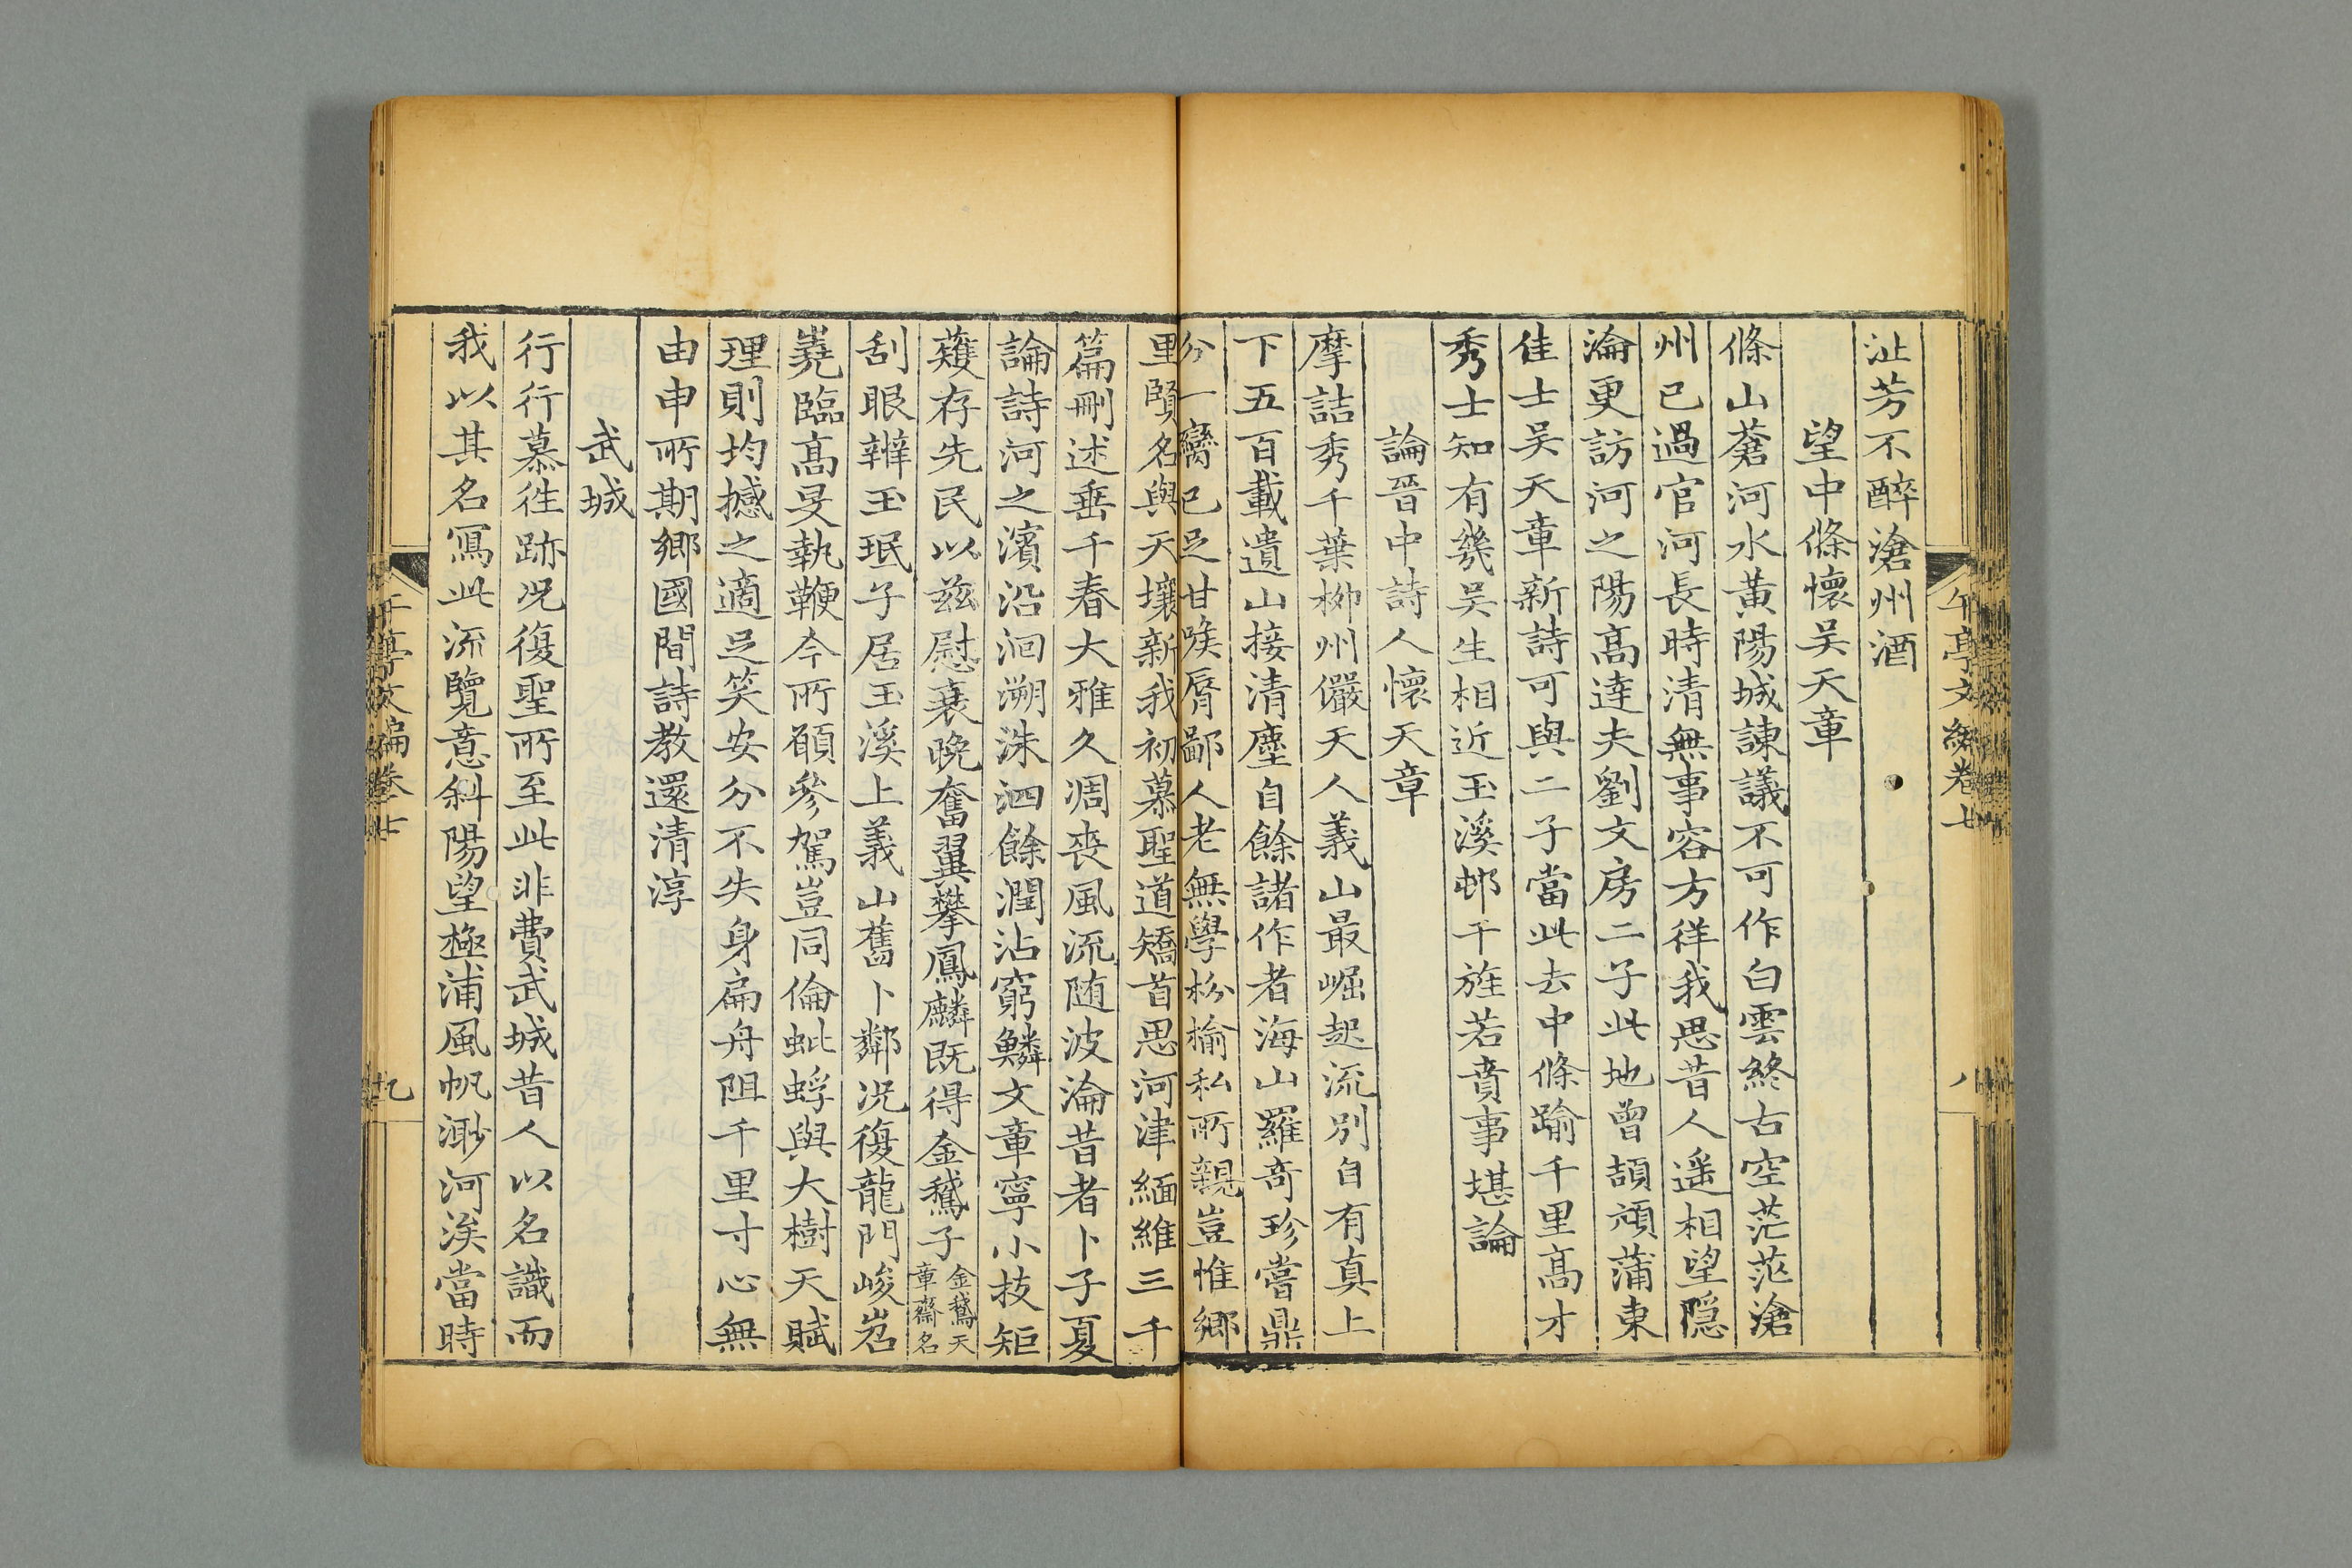 午亭文編卷七
八
沚芳不醉滄州酒
望中條懷吴天章
條山蒼河水黃陽城諫議不可作白雲終古空茫茫滄
州已過官河長時清無事容方徉我思昔人遥相望隠
淪更訪河之陽髙逹夫劉文房二子此地曾頡頏蒲東
佳士吴天章新詩可與二子當此去中條踰千里髙才
秀士知有幾吴生相近玉溪邨干旌若賁事堪論
論晉中詩人懷天章
摩詰秀千葉栁州儼天人義山最崛起流别自有真上
下五百載遺山接清塵自餘諸作者海山羅竒珍嘗鼎
分一臠已足甘喉脣鄙人老無學枌榆私所親豈惟鄉
里賢名與天壤新我初慕聖道矯首思河津緬維三千
篇刪述垂千春大雅久凋喪風流随波淪昔者卜子夏
論詩河之濱沿洄溯洙泗餘潤沾窮鱗文章寧小技矩
蒦存先民以兹慰衰晩奮翼攀鳳麟既得金鵞子金鵞天章齋名
刮眼辨玉珉子居玉溪上義山舊卜鄰况復龍門峻岧
嶤臨髙旻執鞭今所願參駕豈同倫蚍蜉與大樹天賦
理則均撼之適足笑安分不失身扁舟阻千里寸心無
由申所期鄉國間詩教還清淳
武城
行行慕徃跡况復聖所至此非費武城昔人以名識而
我以其名寫此流覽意斜陽望極浦風帆渺河涘當時
午亭文編卷七
九